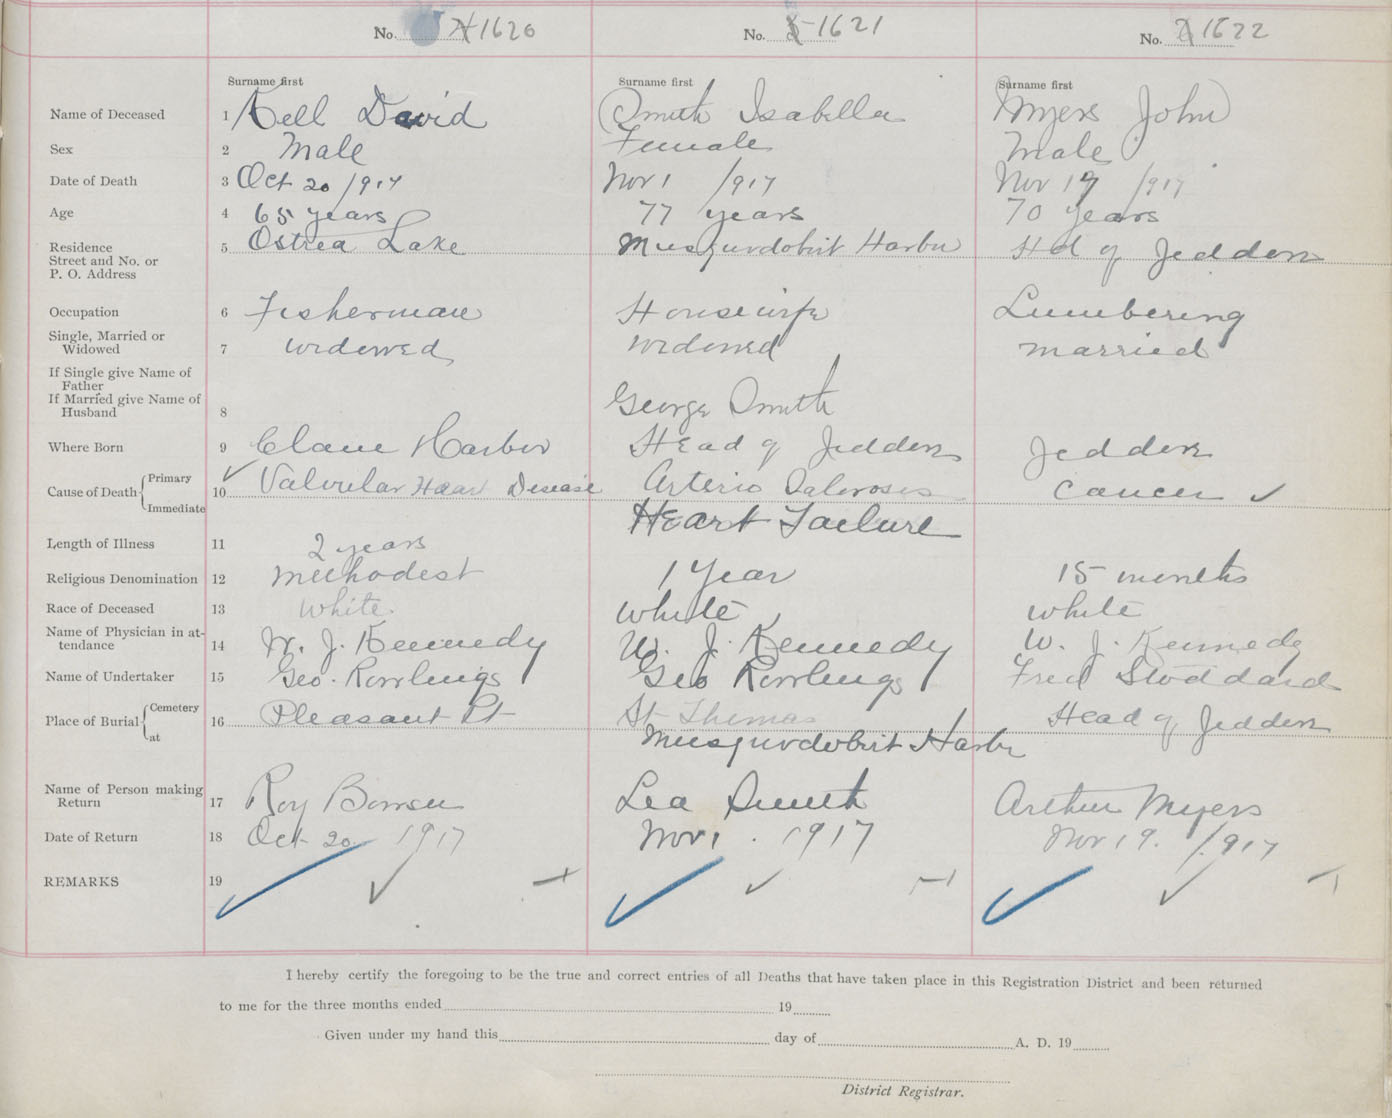 No. 1620 No. 1621 No. 1622
Surname first Surname first Surname first
Name of Deceased 1 Kell David Smith Isabella Myers John
Sex 2 Male Female Male
Date of Death 3 Oct 20 /917 Nov 1 /917 Nov 17 /917
Age 4 65 years 77 years 70 years
Residence
Street and No. or
P. O. Address
5 Ostrea Lake Musquodobit Harbor Hd of Jeddore
Occupation 6 Fisherman Housewife Lumbering
Single, Married or
Widowed
7 widowed widowed married
If Single give Name of
Father
If Married give Name of
Husband
8 George Smith
Where Born 9 Clam Harbor Head of Jeddore Jeddore
Cause of Death Primary
Immediate
10 Valvular Heart Disease Arterio Cancer
Heart Failure
Length of Illness 11 2 years
Religious Denomination 12 Methodest 1 Year 15 months
Race of Deceased 13 White White White
Name of Physician in at-
tendance
14 W. J. Kennedy W. J. Kennedy W. J. Kennedy
Name of Undertaker 15 Geo. Rowlings Geo Rowlings Fred Stoddard
Place of Burial Cemetery
at
16 Pleasant Pt St Thomas Head of Jeddore
Musquodobit Harbr
Name of Person making
Return
17 Roy Bowser Lea Smith Arthur Myers
Date of Return 18 Oct 20 1917 Nov 1. 1917 Nov 19. /917
REMARKS 19
I hereby certify the foregoing to be the true and correct entries of all Deaths that have taken place in this Registration District and been returned
to me for the three months ended 19
Given under my hand this day of A. D. 19
District Registrar.